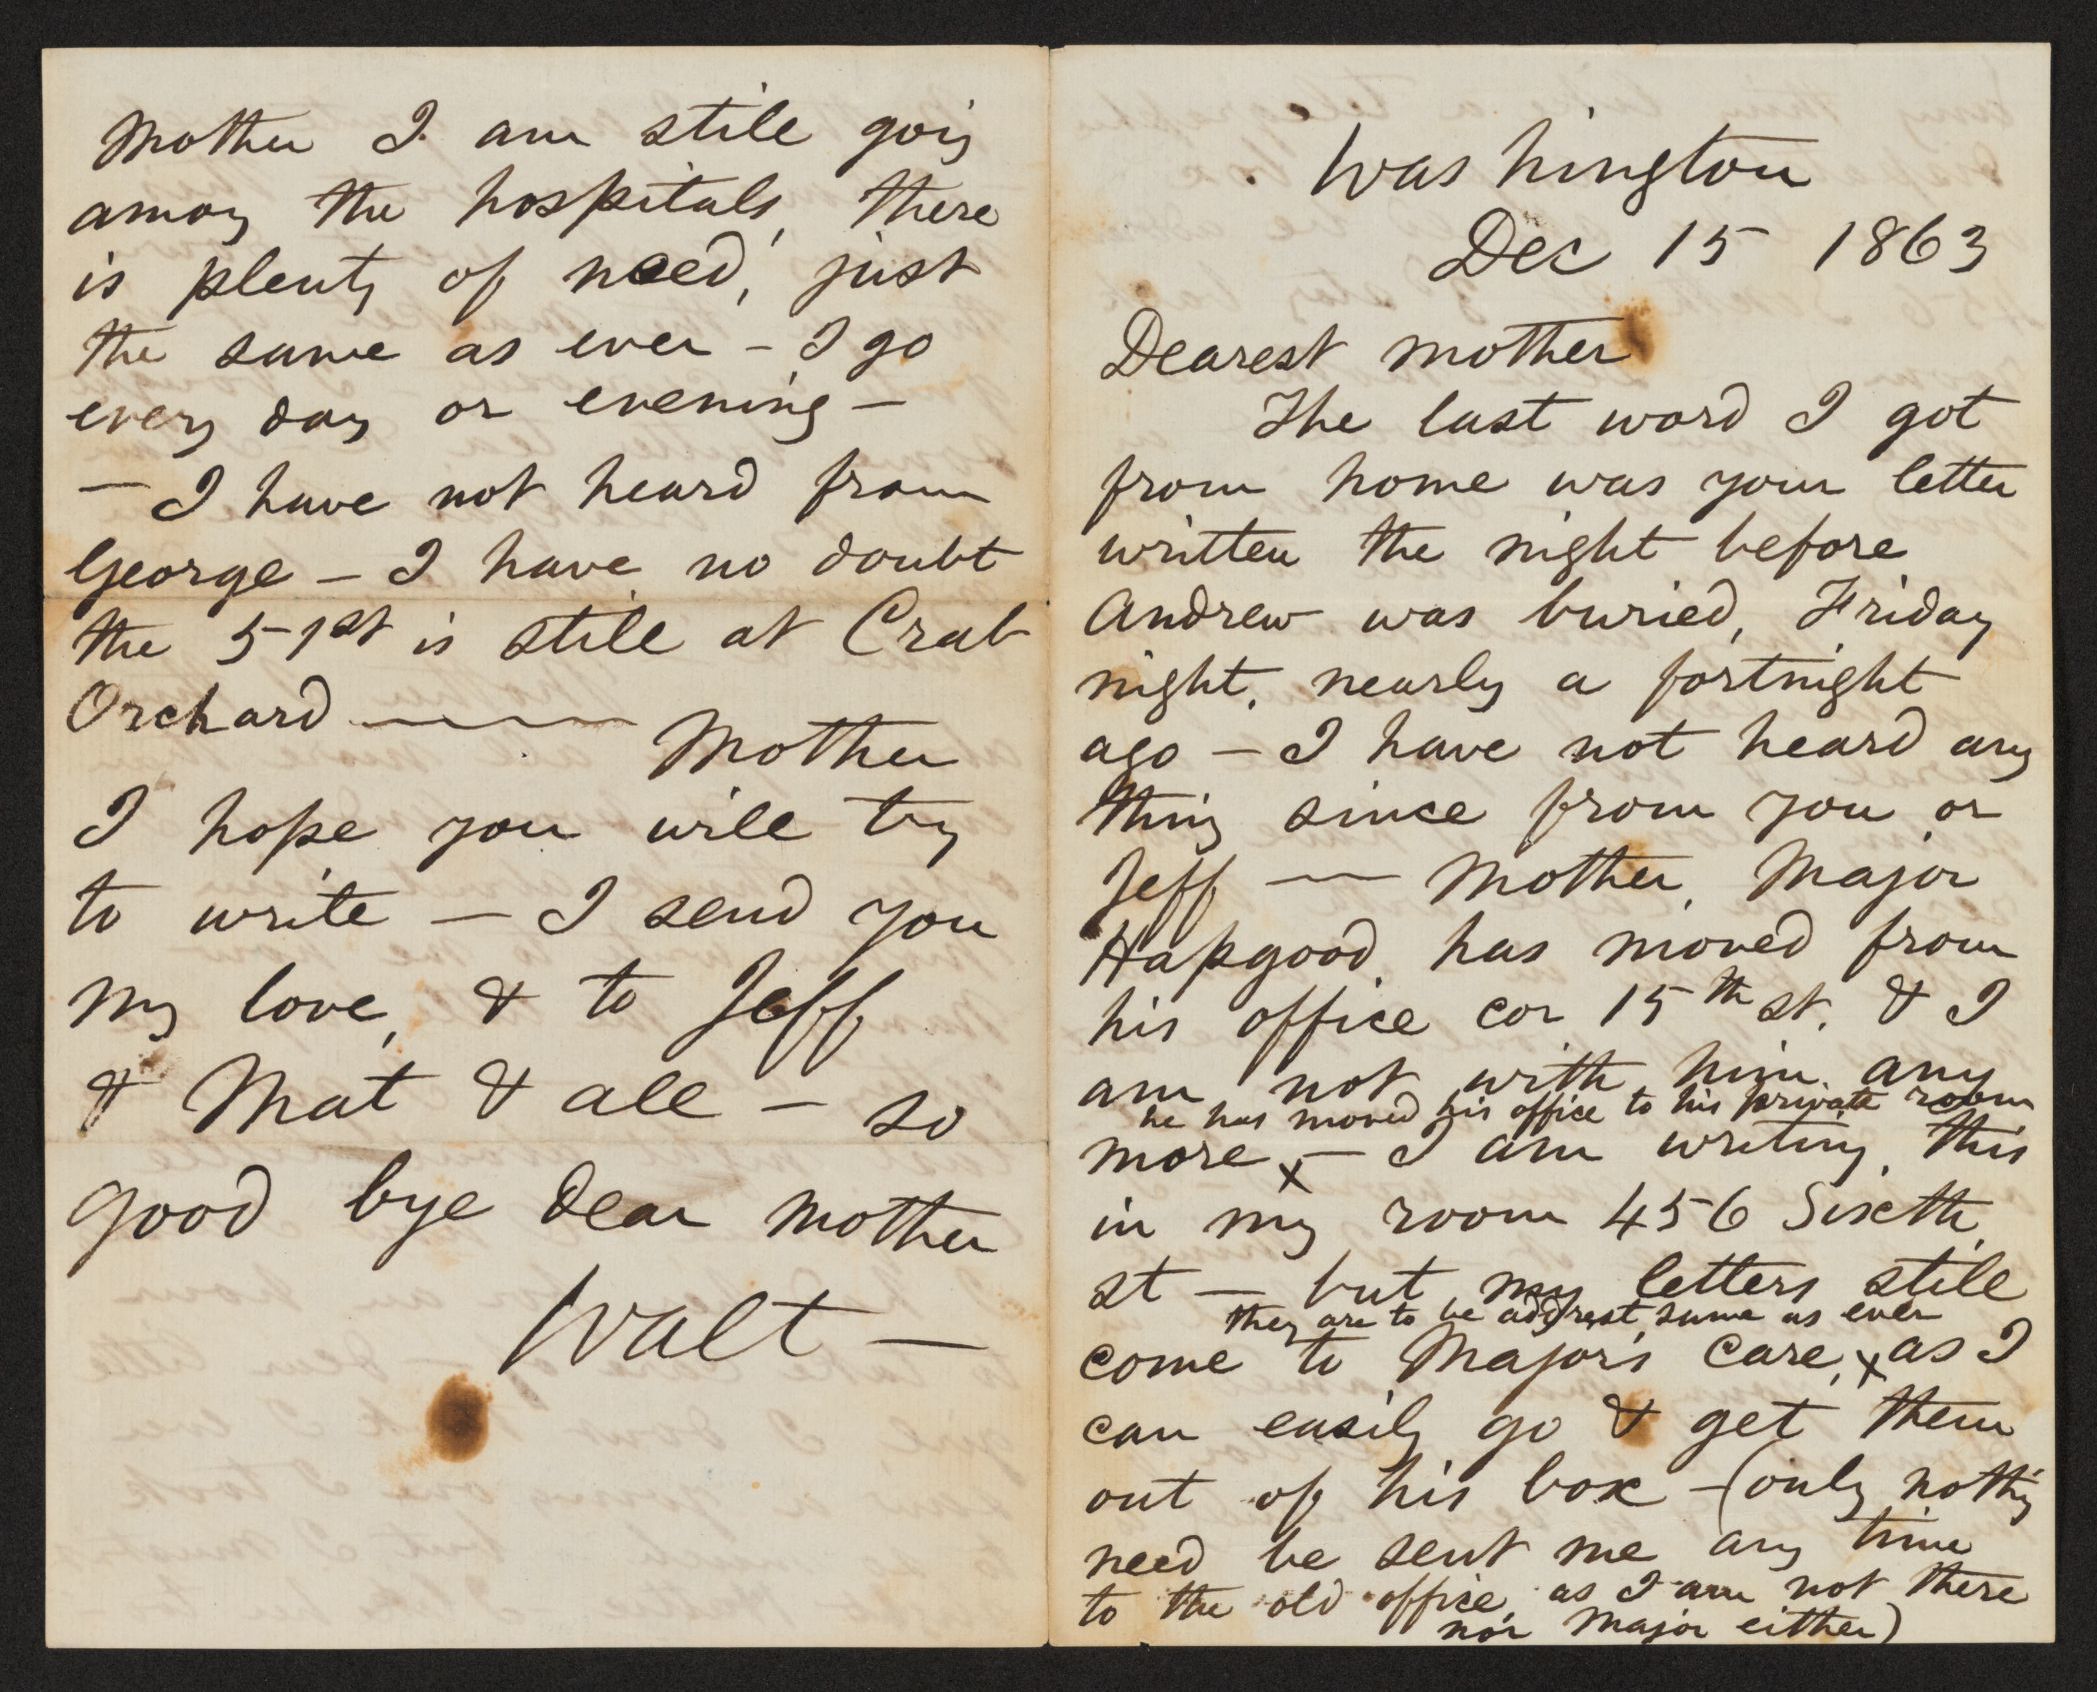 Washington
Dec 15 1863
Dearest mother
The last word I got
from home was your letter
written the night before
Andrew was buried, Friday
night, nearly a fortnight
ago – I have not heard any
thing since from you or
Jeff — Mother, Major
Hapgood has moved from
his office cor 15th st. & I
am not with him any
he has moved his office to his private room
more x – I am writing this
in my room 456 Sixth
st – but my letters still
they are to be addrest same as ever
come to Major's care, x as I
can easily go & get them
out of his box – (only nothing
need be sent me any time
to the old office, as I am not there
nor Major either)
Mother I am still going
among the hospitals, there
is plenty of need, just
the same as ever – I go
every day or evening –
– I have not heard from
George – I have no doubt
the 51st is still at Crab
Orchard —
Mother
I hope you will try
to write – I send you
my love, & to Jeff
& Mat & all – so
good bye dear mother
Walt –